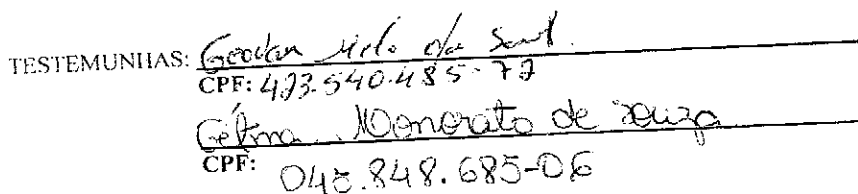 TESTEMUNHAS: Geovan Melo da
CPF: 423.540.485-72
Gélma Monorato de Souza
CPF: 045.848.685-06